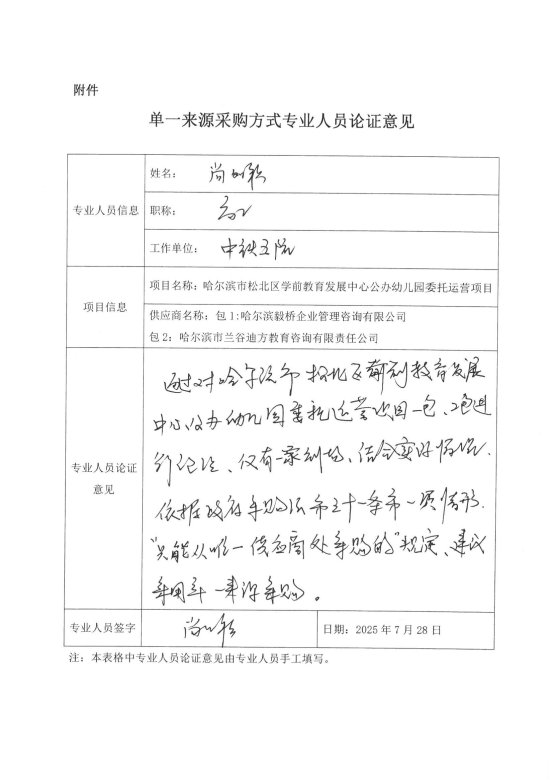 附件
单一来源采购方式专业人员论证意见
专业人员信息
姓名：尚
职称：高工
工作单位：中铁五院
项目信息
项目名称：哈尔滨市松北区学前教育发展中心公办幼儿园委托运营项目
供应商名称：包 1:哈尔滨毅桥企业管理咨询有限公司
包 2：哈尔滨市兰谷迪方教育咨询有限责任公司
专业人员论证
意见
通过对哈尔滨市松北区学前教育发展
中心公办幼儿园委托运营项目一包、2包进
行论证、仅有一家到场、结合实际情况.
依据政府采购法第三十一条第一项情形.
“只能从唯一供应商处采购的”规定、建议
采用单一来源采购。
专业人员签字
尚
日期：2025 年 7 月 28 日
注：本表格中专业人员论证意见由专业人员手工填写。